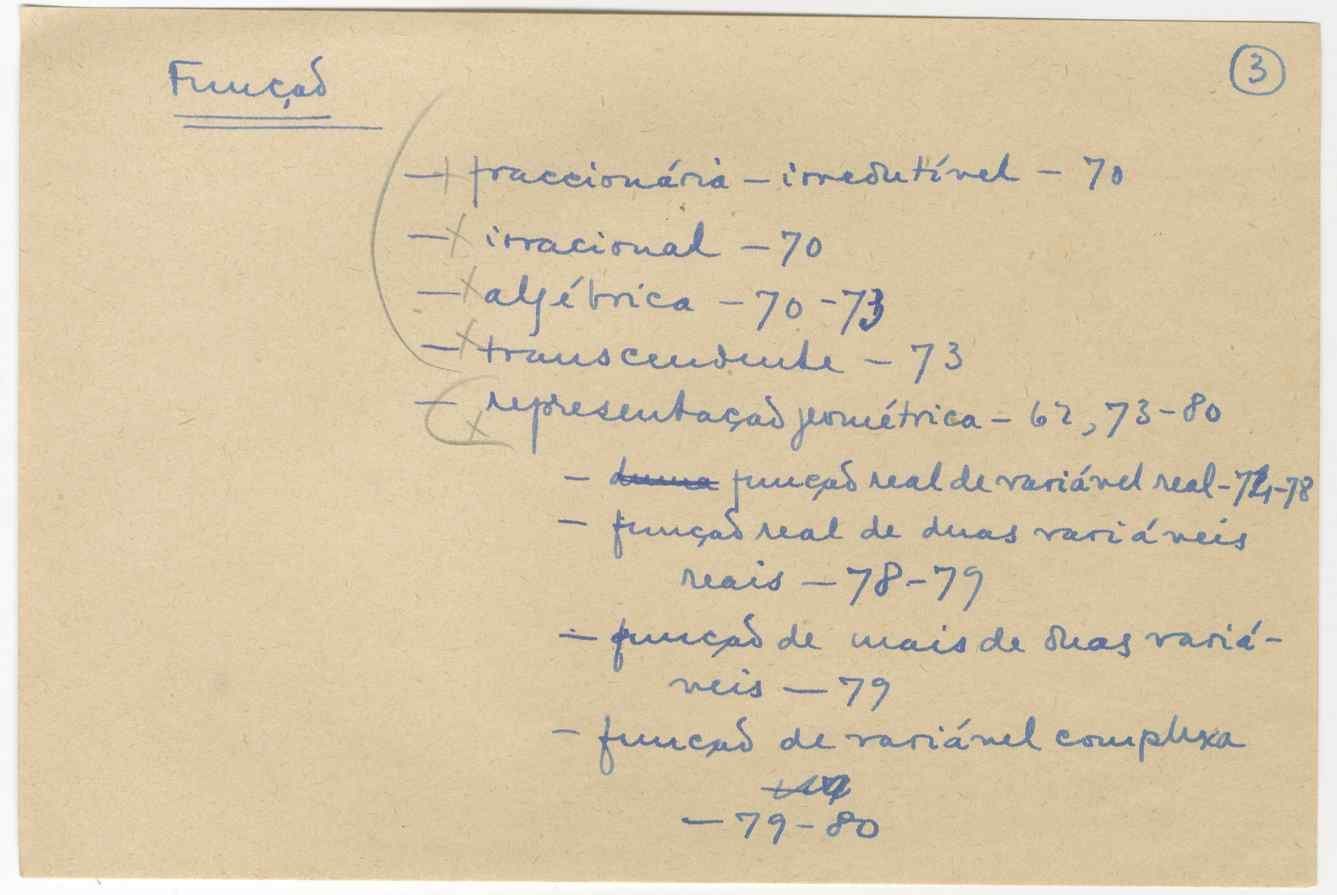 Função
3
— fraccionária – irredutível – 70
— irracional – 70
— algébrica – 70-73
— transcendente – 73
— representação geométrica – 62, 73-80
– duma função real de variável real – 74-78
– função real de duas variáveis
reais – 78-79
– função de mais de duas variá-
veis – 79
– função de variável complexa
– 79-80